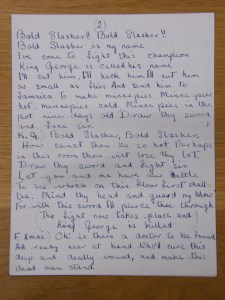 (2)
Bold Slasher!! Bold Slasher!!
Bold Slasher is my name
I've come to fight this champion
King George is called his name
I'll cut him, I'll hack him, I'll cut him
as small as flies, And send him to
Jamaica to make mincepies. Mince pies
hot, mincepies cold, Mince pies in the
pot nine days old. Draw thy sword
and face fair
K.G. Bold Slasher, Bold Slasher,
How canst thou be so hot, Perhaps
in this room thou wilt lose thy lot.
Draw thy sword and fight fair
Let you and me have our battle
To see which on this floor first shall
lie, Mind thy head and guard my blow
For with this sword I'll pierce thee through
The fight now takes place and
King George is killed
F. Xmas. Oh! is there a doctor to be found
All ready near at hand. Who'll cure this
deep and deadly wound, and make this
dead man stand